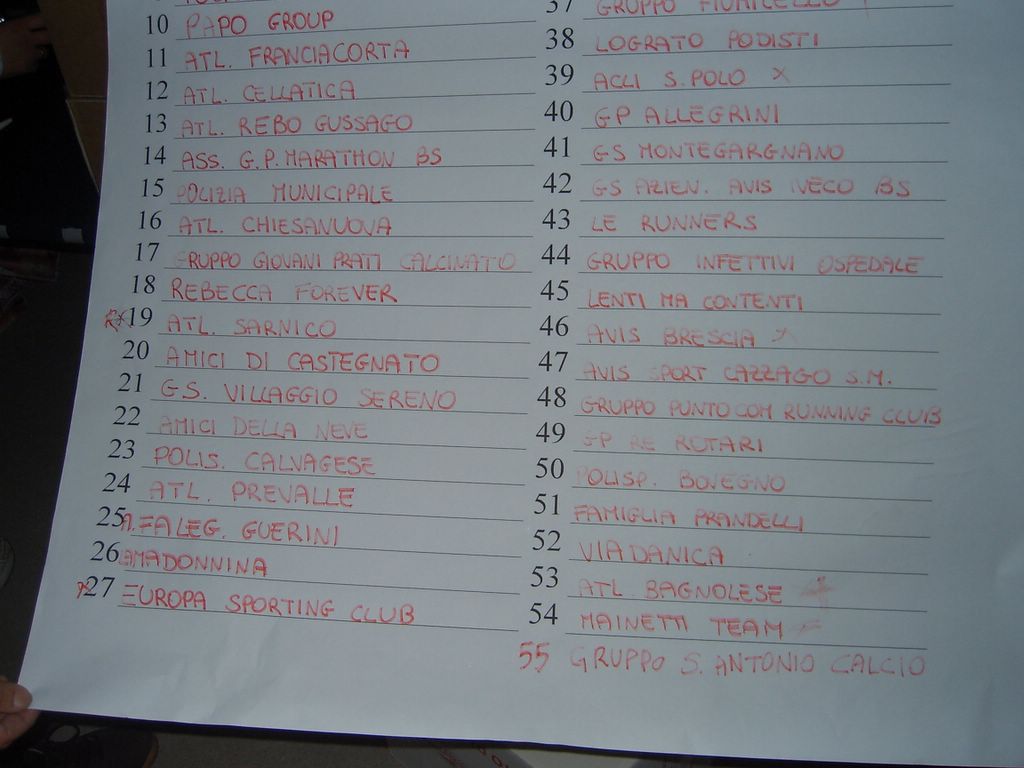 10 PAPO GROUP
11 ATL. FRANCIACORTA
12 ATL. CELLATICA
13 ATL. REBO GUSSAGO
14 ASS. G.P. MARATHON BS
15 POLIZIA MUNICIPALE
16 ATL. CHIESANUOVA
17 GRUPPO GIOVANI PRATI CALCINATO
18 REBECCA FOREVER
19 ATL. SARNICO
20 AMICI DI CASTEGNATO
21 G.S. VILLAGGIO SERENO
22 AMICI DELLA NEVE
23 POLIS. CALVAGESE
24 ATL. PREVALLE
25 FALEG. GUERINI
26 AMADONNINA
27 EUROPA SPORTING CLUB
37 GRUPPO FIUMICELLO
38 LOGRATO PODISTI
39 ACLI S. POLO X
40 GP ALLEGRINI
41 GS MONTEGARGNANO
42 GS AZIEN. AVIS IVECO BS
43 LE RUNNERS
44 GRUPPO INFETTIVI OSPEDALE
45 LENTI MA CONTENTI
46 AVIS BRESCIA X
47 AVIS SPORT CAZZAGO S.M.
48 GRUPPO PUNTO COM RUNNING CLUB
49 GP RE ROTARI
50 POLISP. BOVEGNO
51 FAMIGLIA PRANDELLI
52 VIA DANICA
53 ATL BAGNOLESE
54 MAINETTI TEAM
55 GRUPPO S. ANTONIO CALCIO